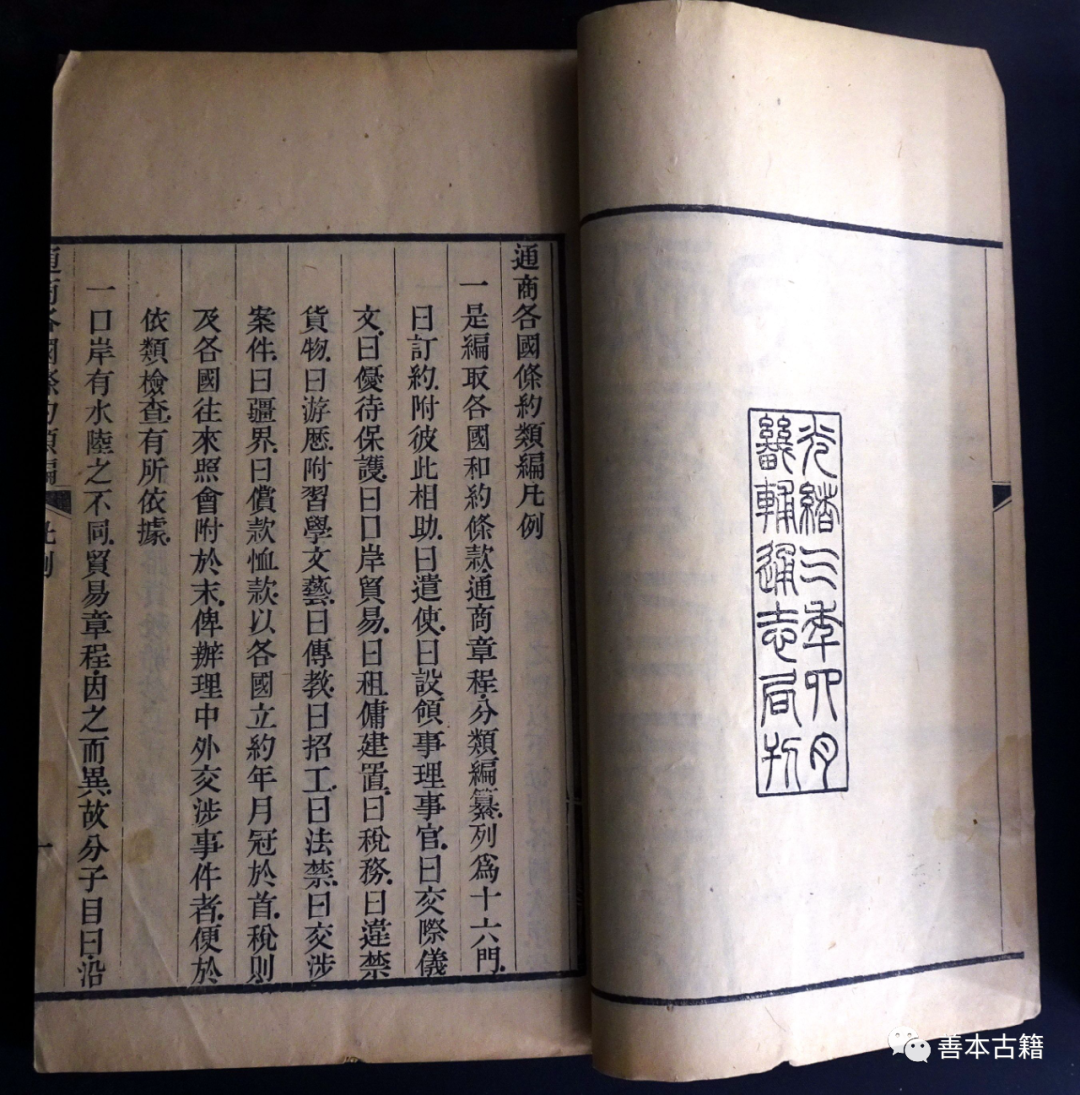 光緒三年四月
畿輔通志局刊
通商各國條約類編凡例
一是編取各國和約條款、通商章程、分類編纂、列爲十六門、
曰訂約、附彼此相助、曰遣使、曰設領事理事官、曰交際儀
文、曰優待保護、曰口岸貿易、曰租傭建置、曰稅務、曰違禁
貨物、曰游歷、附習學文藝、曰傳教、曰招工、曰法禁、曰交涉
案件、曰疆界、曰償款恤款、以各國立約年月冠於首、稅則
及各國往來照會附於末、俾辦理中外交涉事件者、便於
依類檢查、有所依據、
一口岸有水陸之不同、貿易章程、因之而異、故分子目曰、沿
通商各國條約類編 凡例 一
善本古籍